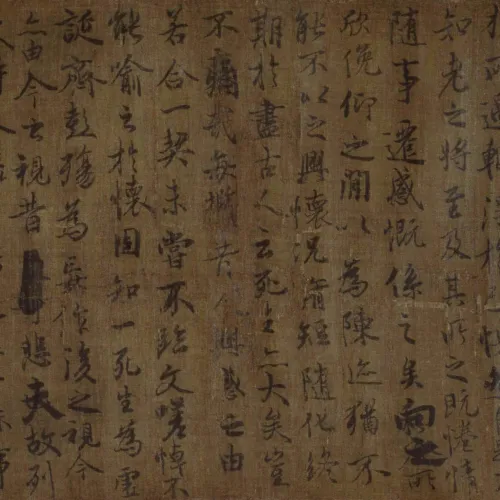 知老之將至及其所之既惓情
隨事遷感慨係之矣向之所
欣俛仰之閒以為陳迹猶不
能不以之興懷況脩短隨化終
期於盡古人云死生亦大矣豈
不痛哉每攬昔人興感之由
若合一契未嘗不臨文嗟悼不
能喻之於懷固知一死生為虛
誕齊彭殤為妄作後之視今
亦由今之視昔悲夫故列